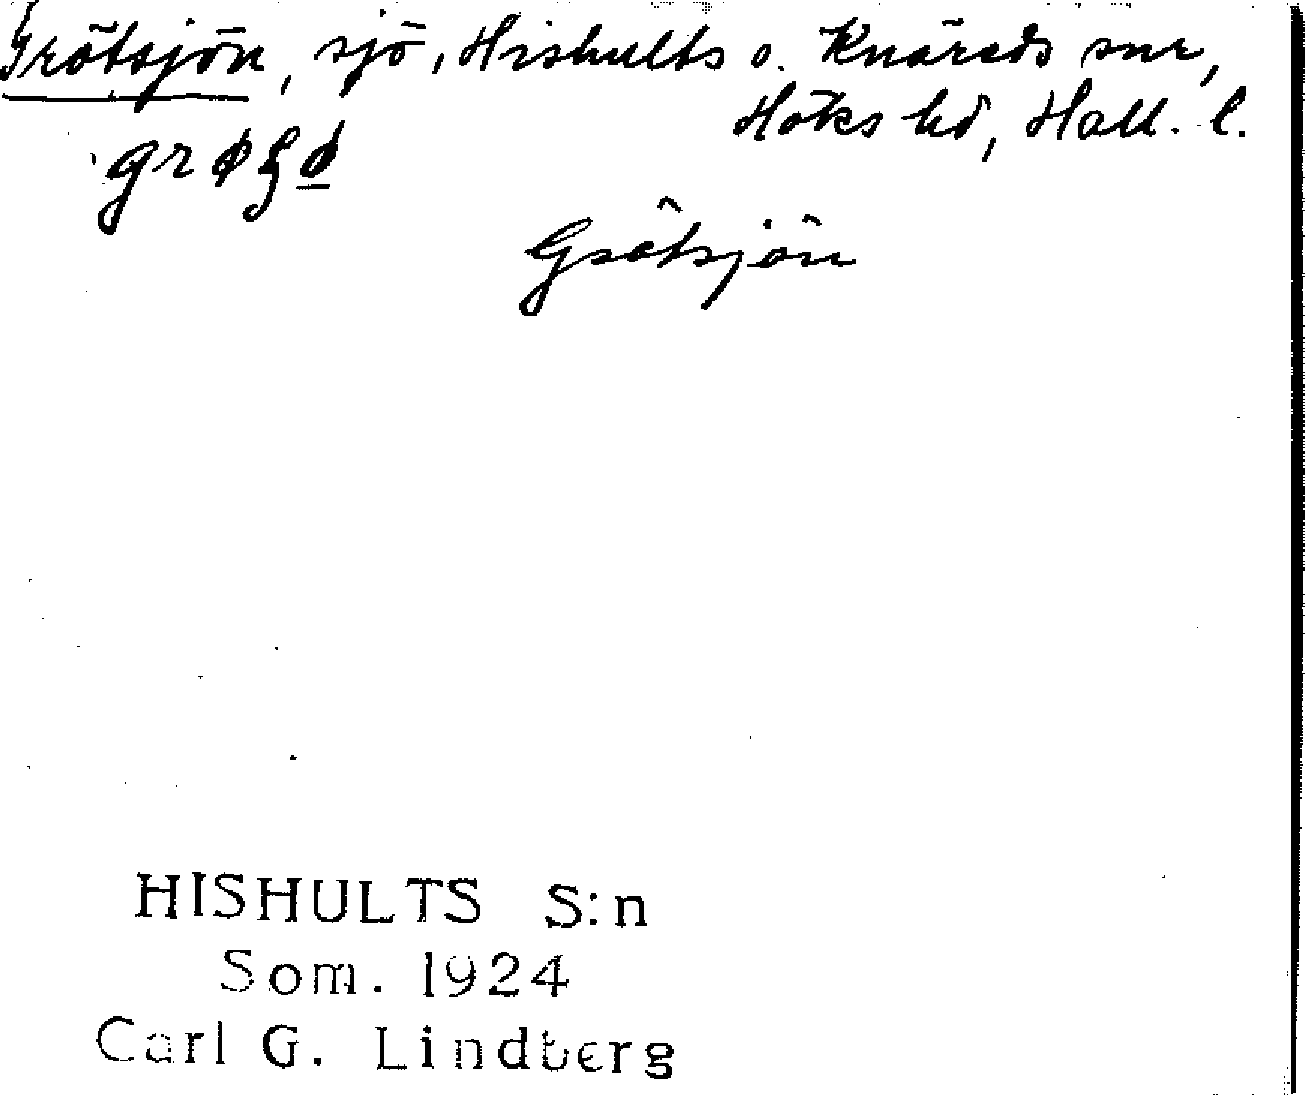 Grötsjön, sjö, Hishults o. Knäreds snr,
Höks hd, Hall. l.
Grötsjön
HISHULTS S:n
Som. 1924
Carl G. Lindberg